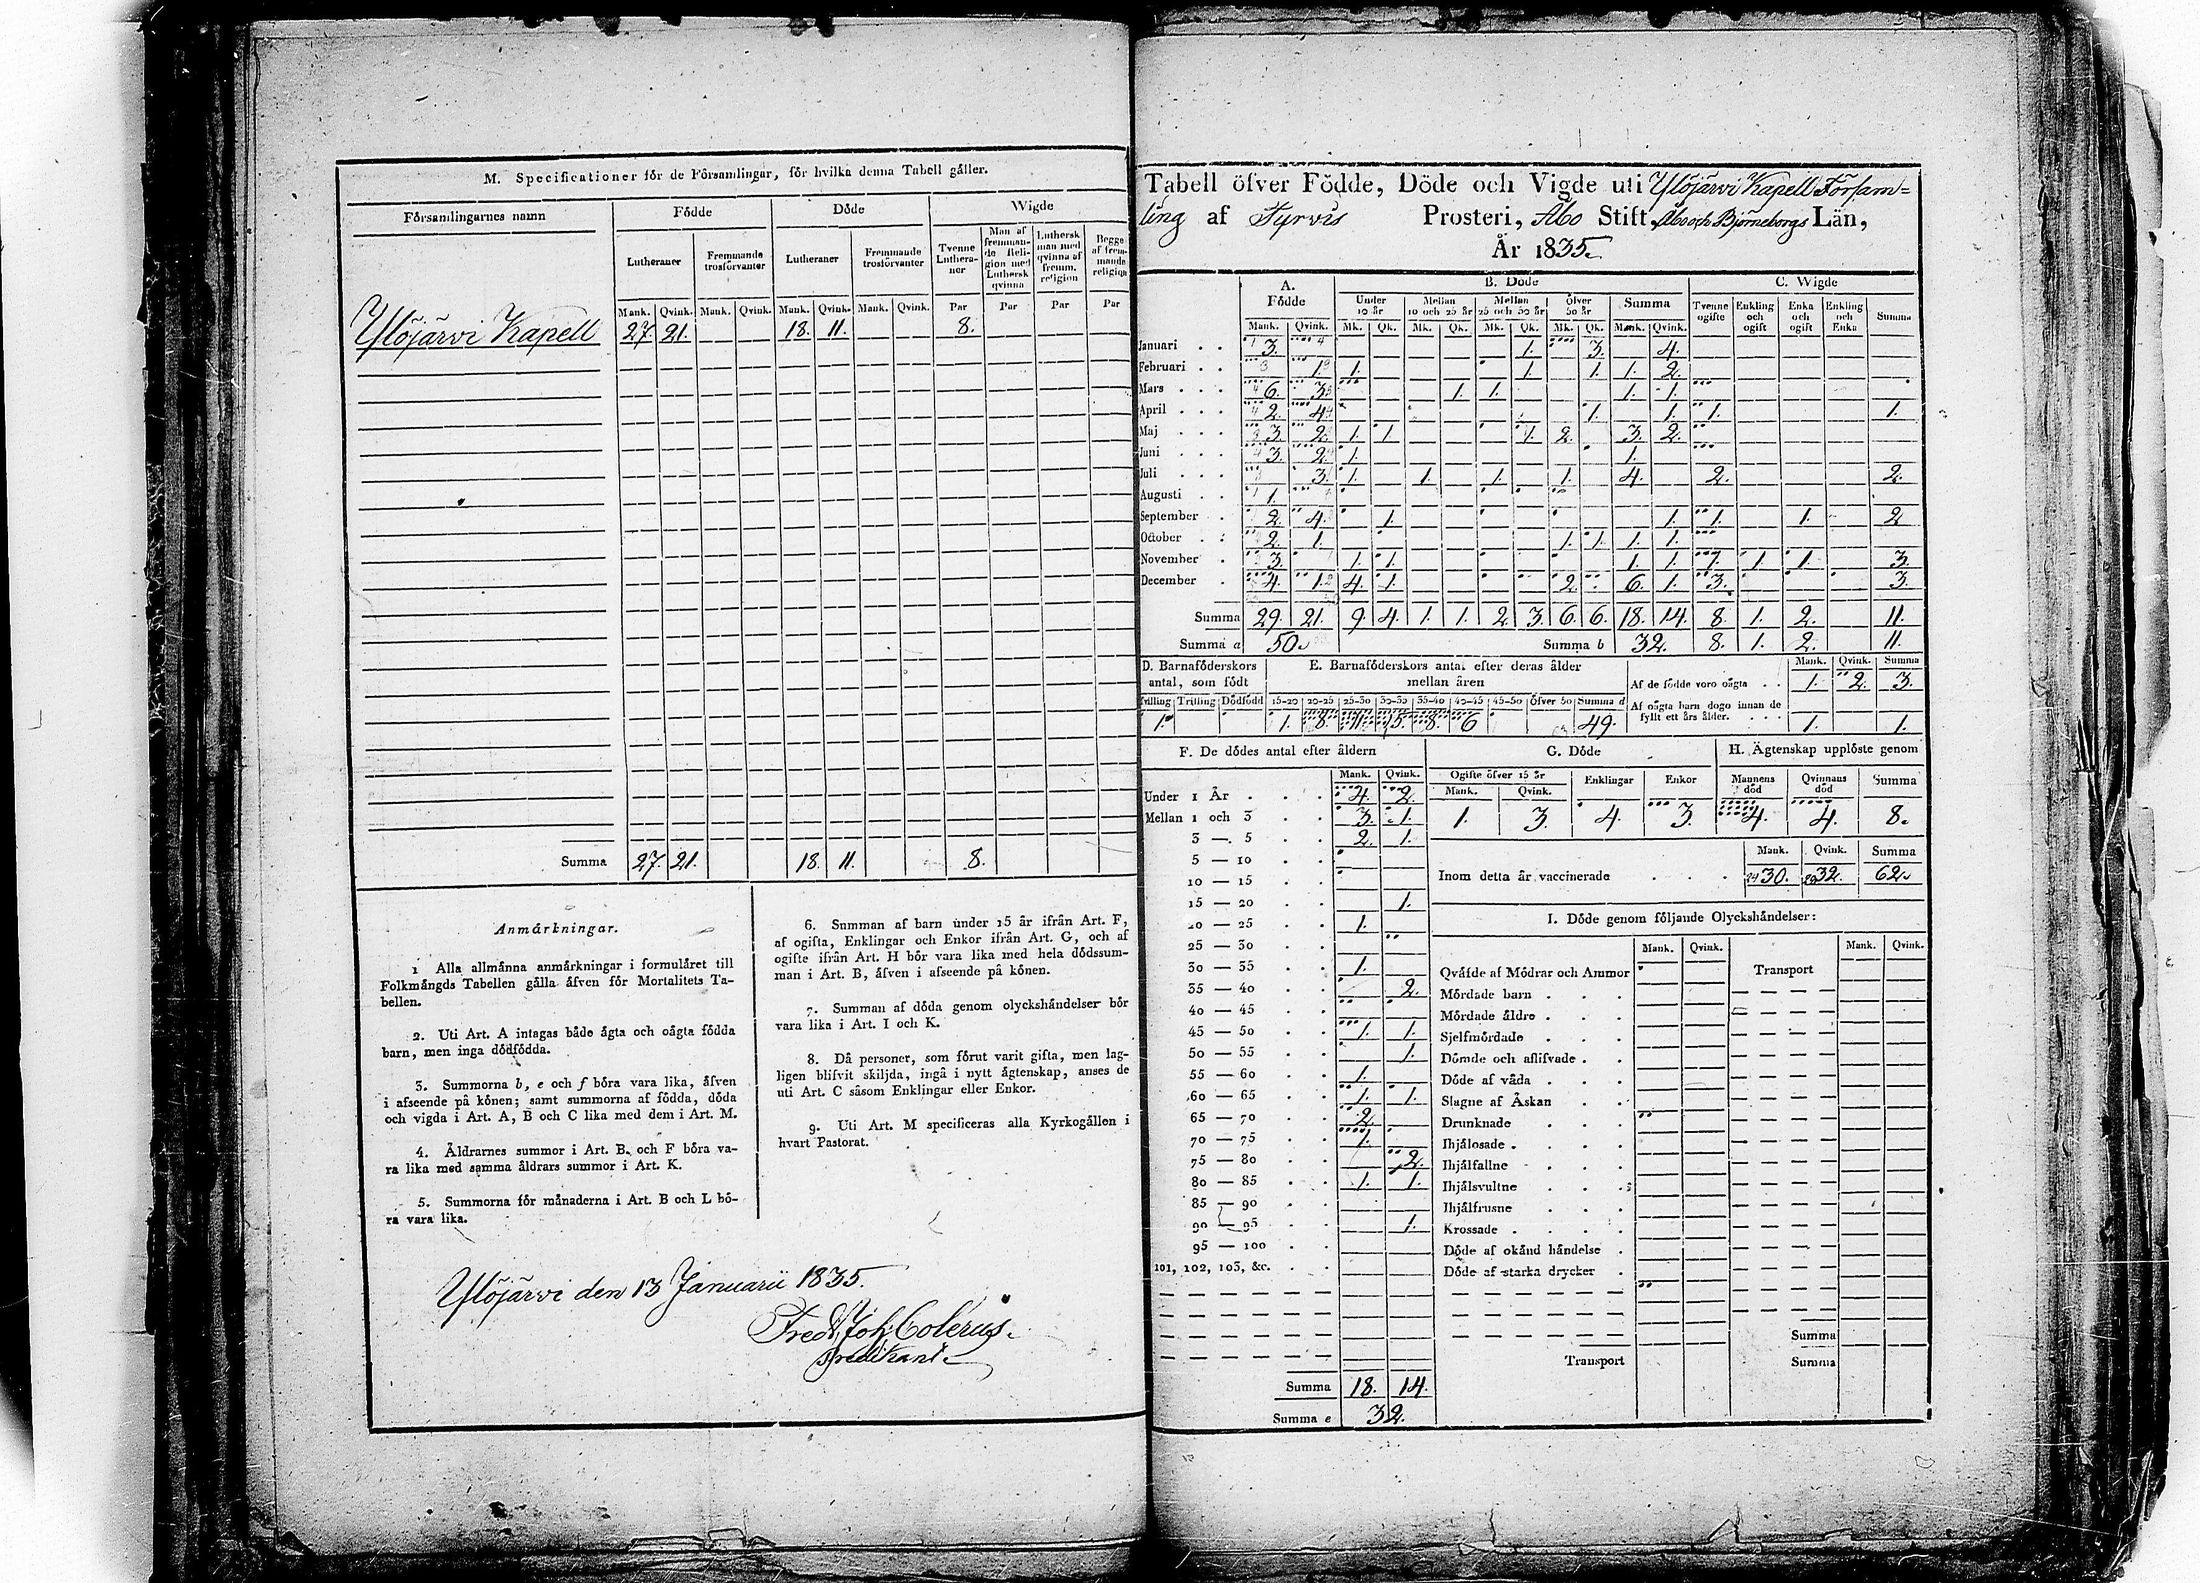 M. Specificationer för de Församlingar, för hvilka denna Tabell gäller.
Församlingarnes namn Födde Döde Wigde
Lutheraner Fremmande trosförvanter Lutheraner Fremmande trosförvanter Tvenne Lutheraner Man af fremmande Religion med Luthersk qvinna Luthersk man med qvinna af fremm. religion Begge af fremmande religion
Mank. Qvink. Mank. Qvink. Mank. Qvink. Mank. Qvink. Par Par Par Par
Ylöjärvi Kapell 27. 21. 18. 11. 8.
Summa 27. 21. 18. 11. 8.
Anmärkningar.
1 Alla allmänna anmärkningar i formuläret till
Folkmängds Tabellen gälla äfven för Mortalitets Ta-
bellen.
2. Uti Art. A intagas både ägta och oägta födda
barn, men inga dödfödda.
3. Summorna b, e och f böra vara lika, äfven
i afseende på könen; samt summorna af födda, döda
och vigda i Art. A, B och C lika med dem i Art. M.
4. Åldrarnes summor i Art. B. och F böra va-
ra lika med samma åldrars summor i Art. K.
5. Summorna för månaderna i Art. B och L bö-
ra vara lika.
6. Summan af barn under 15 år ifrån Art. F,
af ogifta, Enklingar och Enkor ifrån Art. G, och af
ogifte ifrån Art. H bör vara lika med hela dödssum-
man i Art. B, äfven i afseende på könen.
7. Summan af döda genom olyckshändelser bör
vara lika i Art. I och K.
8. Då personer, som förut varit gifta, men lag-
ligen blifvit skiljda, ingå i nytt ägtenskap, anses de
uti Art. C såsom Enklingar eller Enkor.
9. Uti Art. M specificeras alla Kyrkogällen i
hvart Pastorat.
Ylöjärvi den 13 Januarii 1835.
Fredr. Joh. Colerus.
Predikant
Tabell öfver Födde, Döde och Vigde uti Ylöjärvi Kapell Församl=
ling af Tyrvis Prosteri, Åbo Stift, Åbo och Björneborgs Län,
År 1835.
A. Födde B. Döde C. Wigde
Under 10 år Mellan 10 och 25 år Mellan 25 och 50 år Öfver 50 år Summa Tvenne ogifte Enkling och ogift Enka och ogift Enkling och Enka Summa
Mank. Qvink. Mk. Qk. Mk. Qk. Mk. Qk. Mk. Qk. Mank. Qvink.
Januari 3. 1. 3. 4.
Februari 1. 1. 1. 1. 1. 2.
Mars 6. 3. 1. 1. 1. 1.
April 2. 4. 1. 1. 1. 1.
Maj 3. 2. 1. 1. 1. 2. 3. 2.
Juni 3. 2. 1. 1.
Juli 3. 1. 1. 1. 1. 4. 2. 2.
Augusti 1.
September 2. 4. 1. 1. 1. 1. 2
October 2. 1. 1. 1. 1. 1.
November 3. 1. 1. 1. 1. 1. 1. 1. 3.
December 4. 1. 4. 1. 2. 6. 1. 3. 3.
Summa 29. 21. 9. 4. 1. 1. 2. 3. 6. 6. 18. 14. 8. 1. 2. 11.
Summa a 50. Summa b 32. 8. 1. 2. 11.
D. Barnaföderskors antal, som födt E. Barnaföderskors antal efter deras ålder mellan åren
Mank. Qvink. Summa
Af de födde voro oägta 1. 2. 3.
Tvilling Trilling Dödfödd 15-20 20-25 25-30 30-35 35-40 40-45 45-50 Öfver 50 Summa d
Af oägta barn dogo innan de fyllt ett års ålder. 1. 1.
1. 1. 8. 11. 15. 8. 6 49.
F. De dödes antal efter åldern
Mank. Qvink.
Under 1 År 4. 2.
Mellan 1 och 3 3. 1.
3 — 5 2. 1.
5 — 10
10 — 15
15 — 20 1.
20 — 25 1.
25 — 30
30 — 35 1.
35 — 40 2.
40 — 45
45 — 50 1. 1.
50 — 55 1.
55 — 60 1.
60 — 65 1. 1.
65 — 70 2.
70 — 75 1.
75 — 80 2.
80 — 85 1. 1.
85 — 90
90 — 95 1.
95 — 100
101, 102, 103, &c.
Summa 18. 14.
Summa e 32.
G. Döde H. Ägtenskap upplöste genom
Ogifte öfver 15 år Enklingar Enkor Mannens död Qvinnans död Summa
Mank. Qvink.
1. 3. 4. 3. 4. 4. 8.
Mank. Qvink. Summa
Inom detta år vaccinerade 30. 32. 62.
I. Döde genom följande Olyckshändelser:
Mank. Qvink. Mank. Qvink.
Qväfde af Mödrar och Ammor Transport
Mördade barn
Mördade äldre
Sjelfmördade
Dömde och aflifvade
Döde af våda
Slagne af Åskan
Drunknade
Ihjälosade
Ihjälfallne
Ihjälsvultne
Ihjälfrusne
Krossade
Döde af okänd händelse
Döde af starka drycker
Summa
Transport Summa